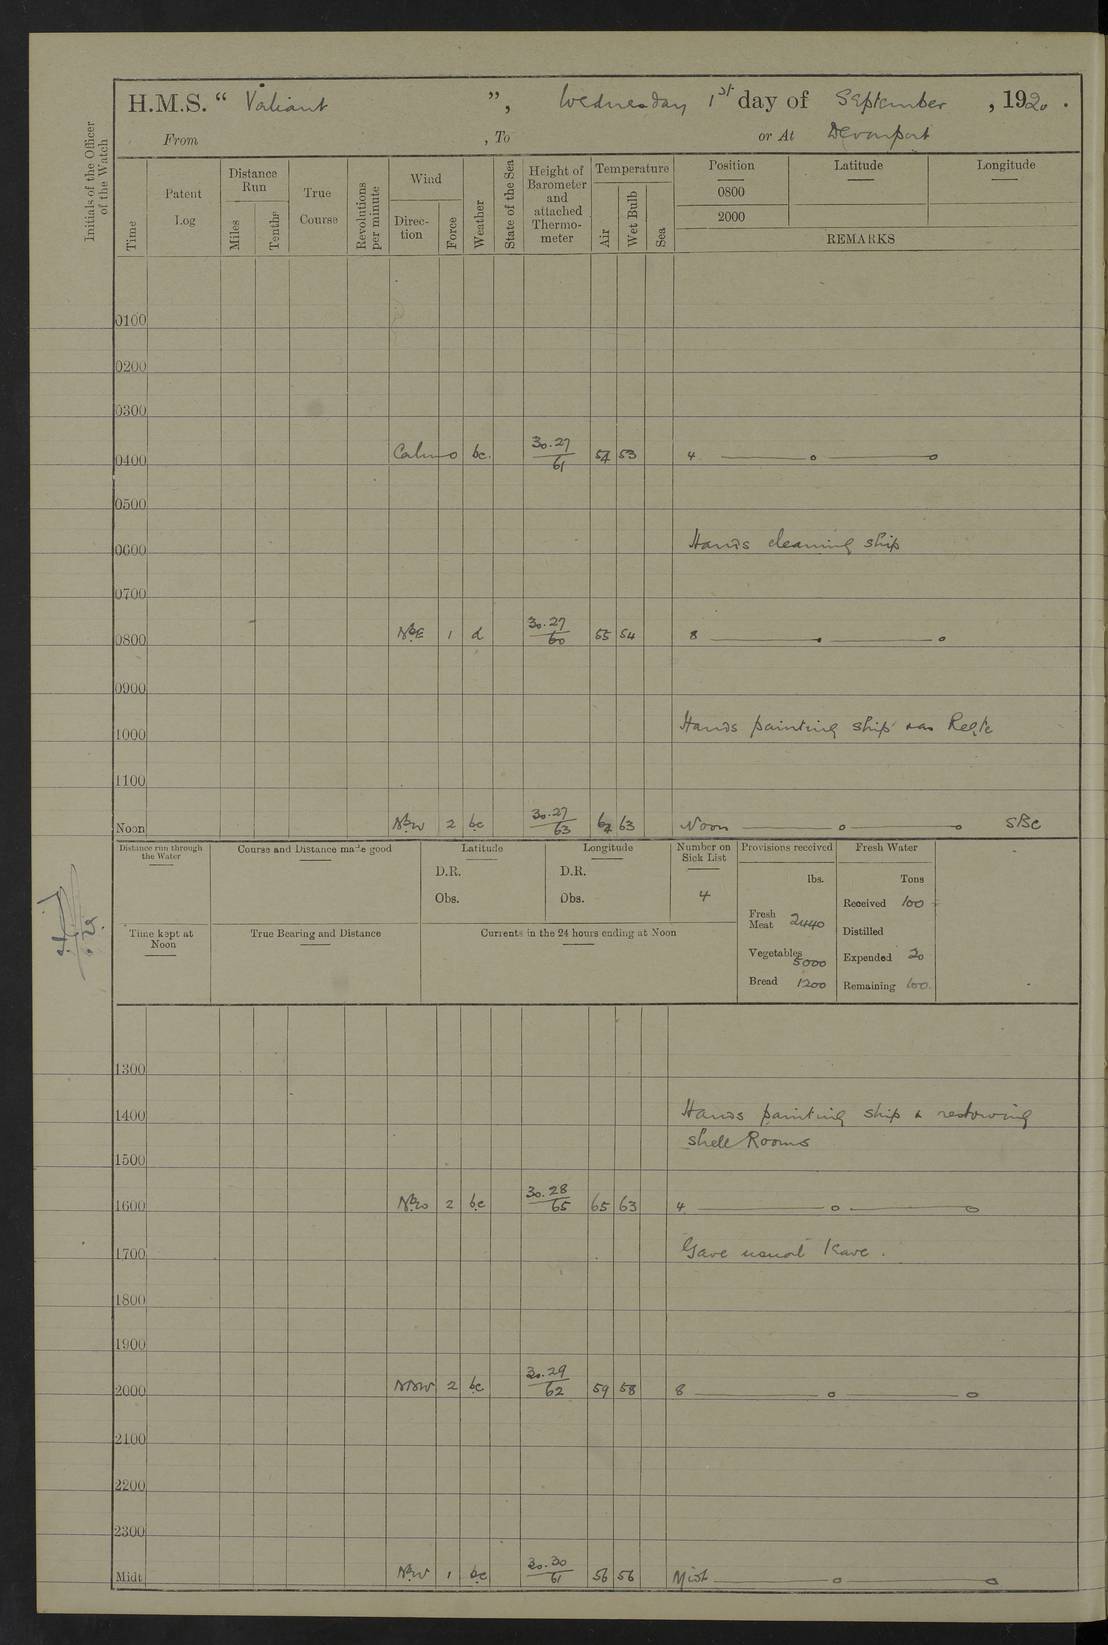 H.M.S. “ Valiant ”, Wednesday 1st day of September , 1920 .
From , To or At Devonport
Initials of the Officer of the Watch
Time
Patent Log
Distance Run
Miles
Tenths
True Course
Revolutions per minute
Wind
Direction
Force
Weather
State of the Sea
Height of Barometer and attached Thermometer
Temperature
Air
Wet Bulb
Sea
Position Latitude Longitude
0800
2000
REMARKS
0100
0200
0300
0400 Calm 0 bc. 30.27/61 54 53 4
0500
0600 Hands cleaning ship
0700
0800 NbE 1 d 30.27/60 55 54 8
0900
1000 Hands painting ship
1100
Noon NbW 2 bc 30.27/63 64 63 Noon SBC
Distance run through the Water
Course and Distance made good
Latitude
D.R.
Obs.
Longitude
D.R.
Obs.
Number on Sick List
4
Provisions received
lbs.
Fresh Meat 2440
Vegetables 5000
Bread 1200
Fresh Water
Tons
Received 100
Distilled
Expended 20
Remaining 100
Time kept at Noon
True Bearing and Distance
Currents in the 24 hours ending at Noon
1300
1400 Hands painting ship & restowing
shell Rooms
1500
1600 NbW 2 bc 30.28/65 65 63 4
1700 Gave usual leave.
1800
1900
2000 NNW 2 bc 30.29/62 59 58 8
2100
2200
2300
Midt NbW 1 bc 30.30/61 56 56 Midt